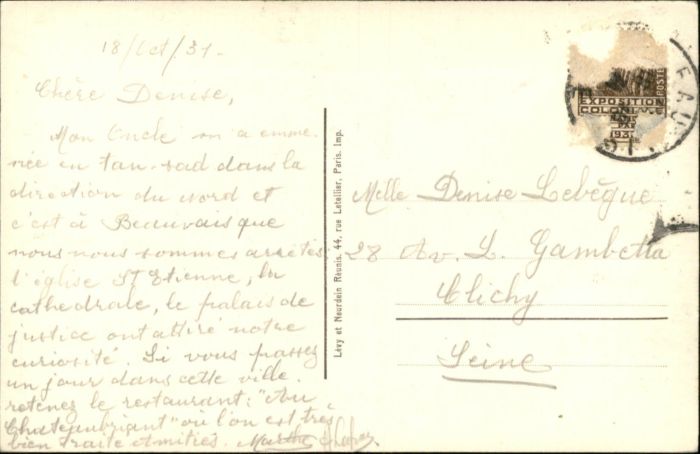 18/Oct/31-
Chère Denise,
Mon Oncle m'a emme-
née en tan-sad dans la
direction du nord et
c'est à Beauvais que
nous nous sommes arrêtés
l'église St Etienne, la
cathédrale, le palais de
justice ont attiré notre
curiosité. Si vous passez
un jour dans cette ville.
retenez le restaurant: "Au
Chateaubriant" où l'on est très
bien traité Amitiés. Marthe
Levy et Neurdein Réunis. 44, rue Letellier, Paris. Imp.
POSTE
EXPOSITION
COLONIALE
PARIS
1931
Melle Denise Lebègue
28 Av. L. Gambetta
Clichy
Seine